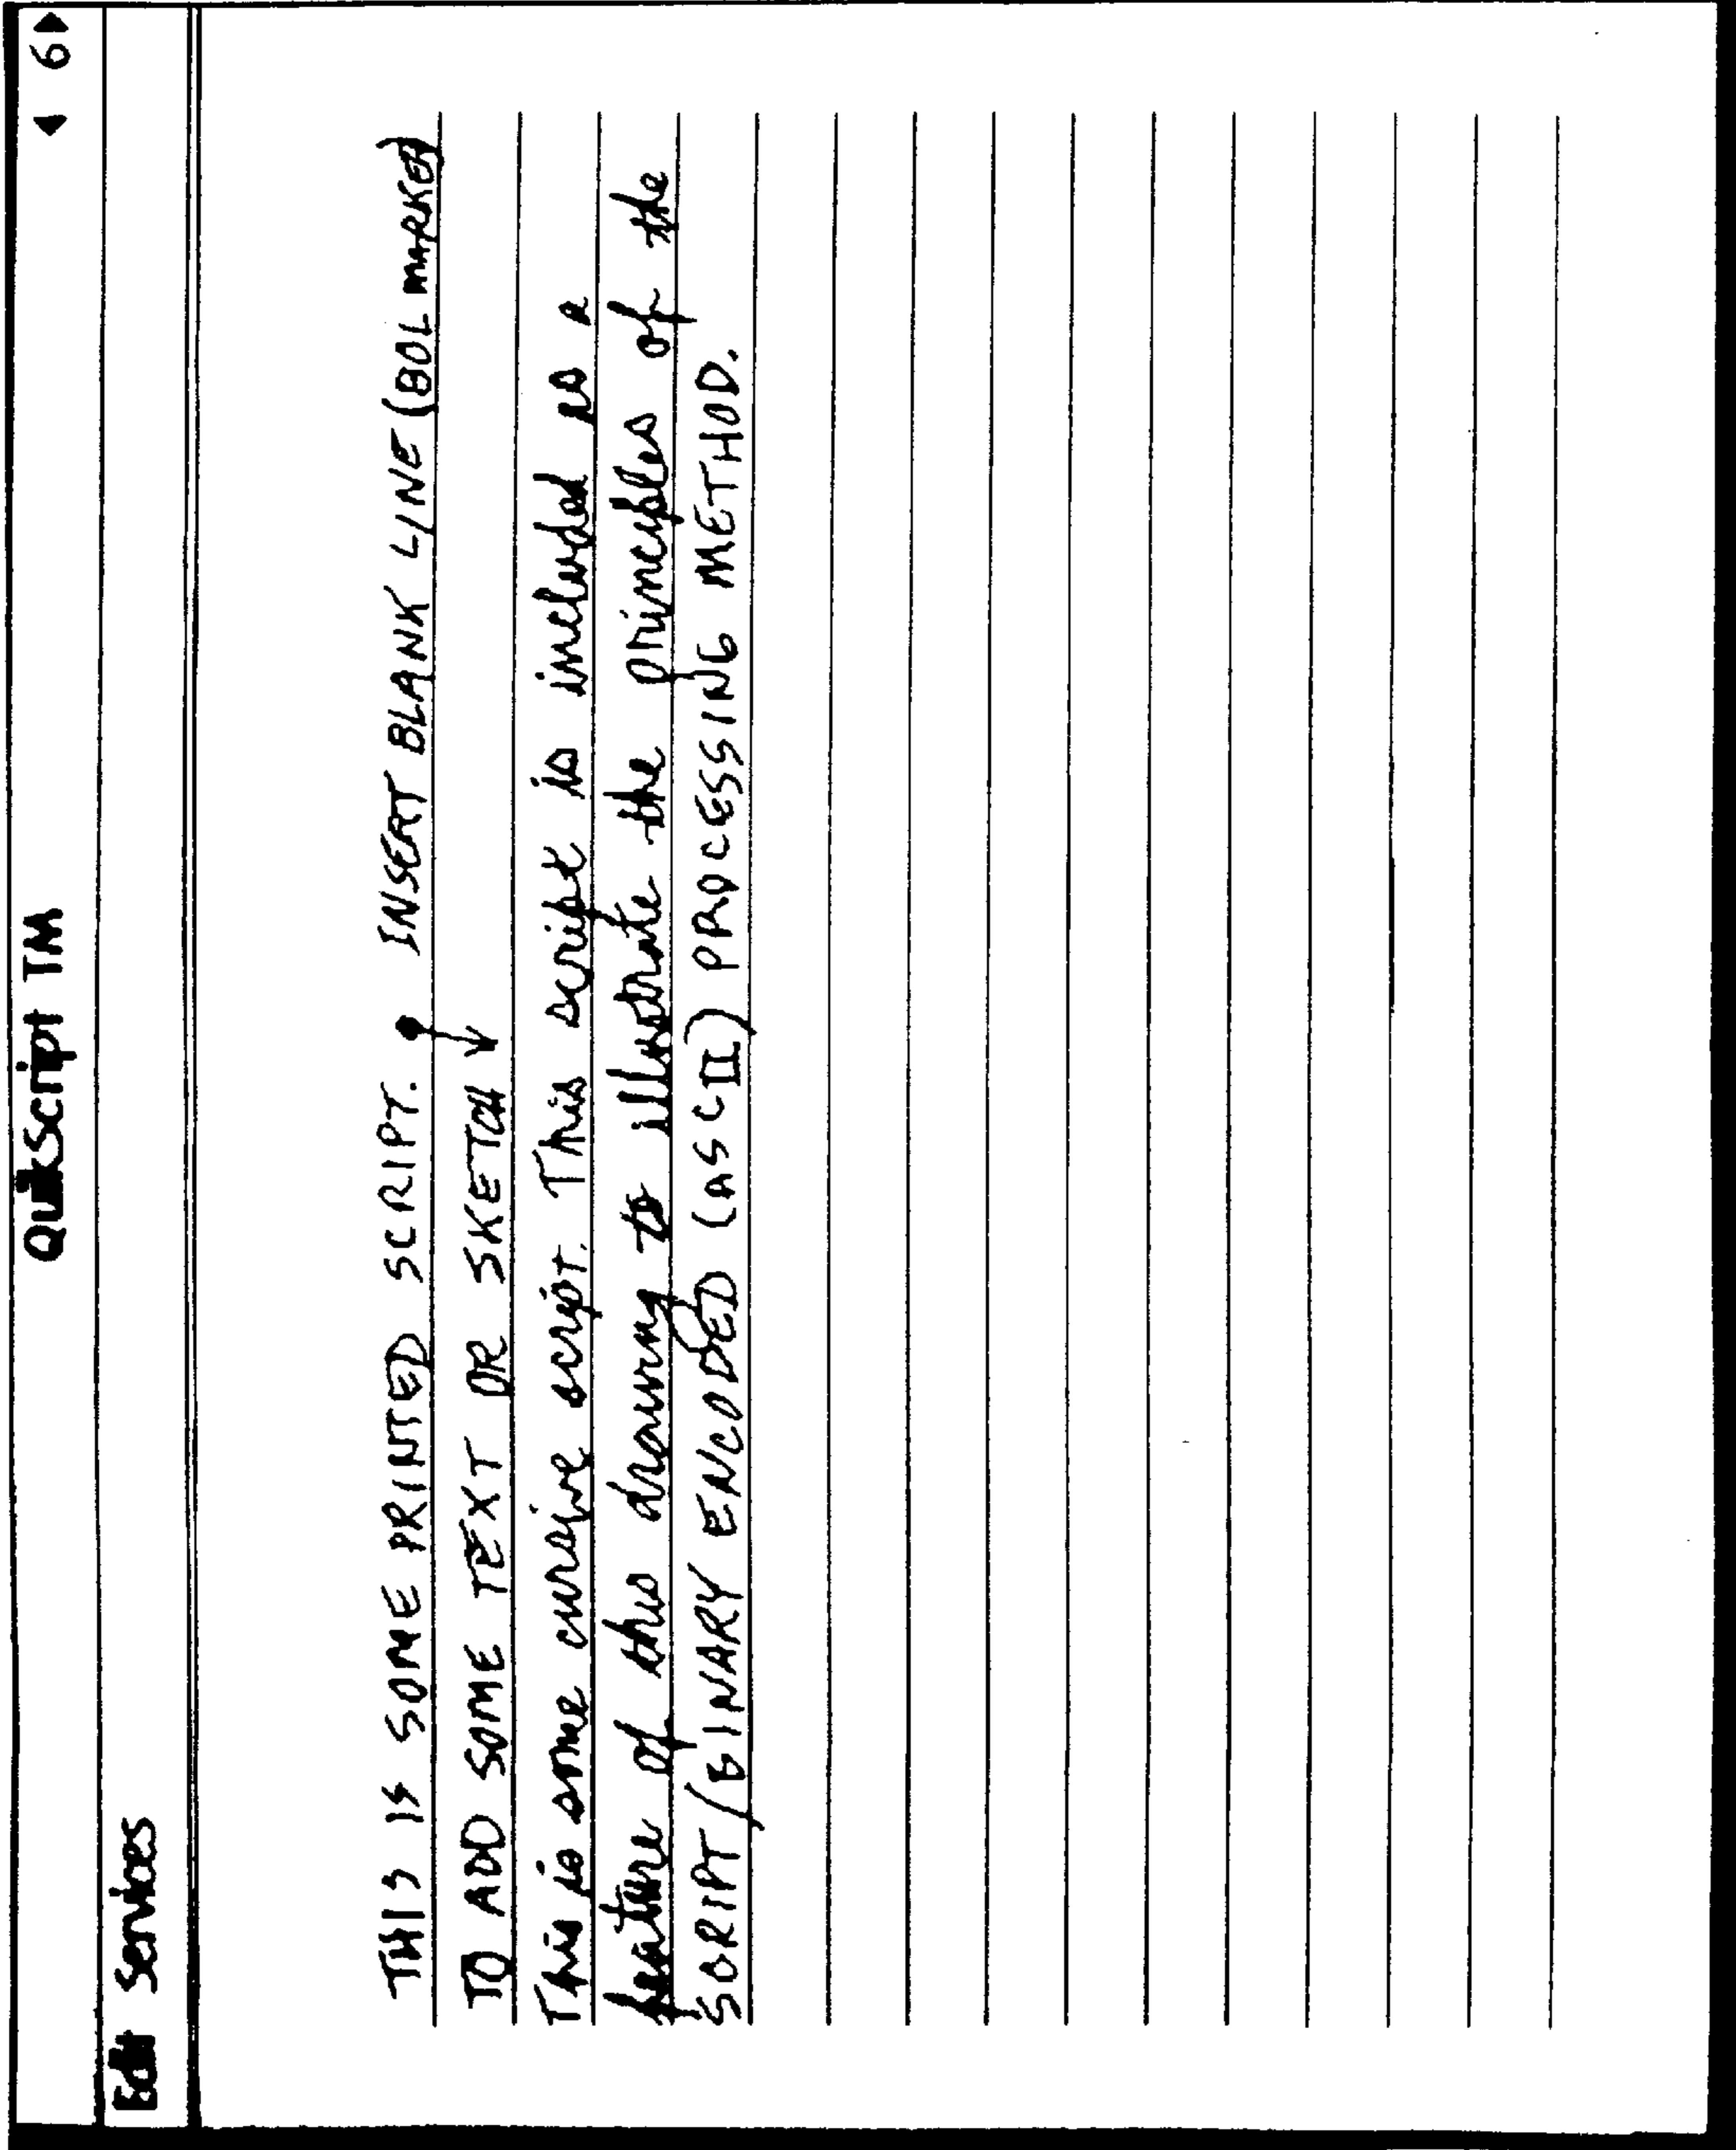 QuikScript TM ◀ 6▶
Edit Services
THIS IS SOME PRINTED SCRIPT. INSERT BLANK LINE (BOL MARKER)
TO ADD SOME TEXT OR SKETCH
This is some cursive script. This script is included as a
feature of this drawing to illustrate the principles of the
SCRIPT/BINARY ENCODED (ASCII) PROCESSING METHOD.